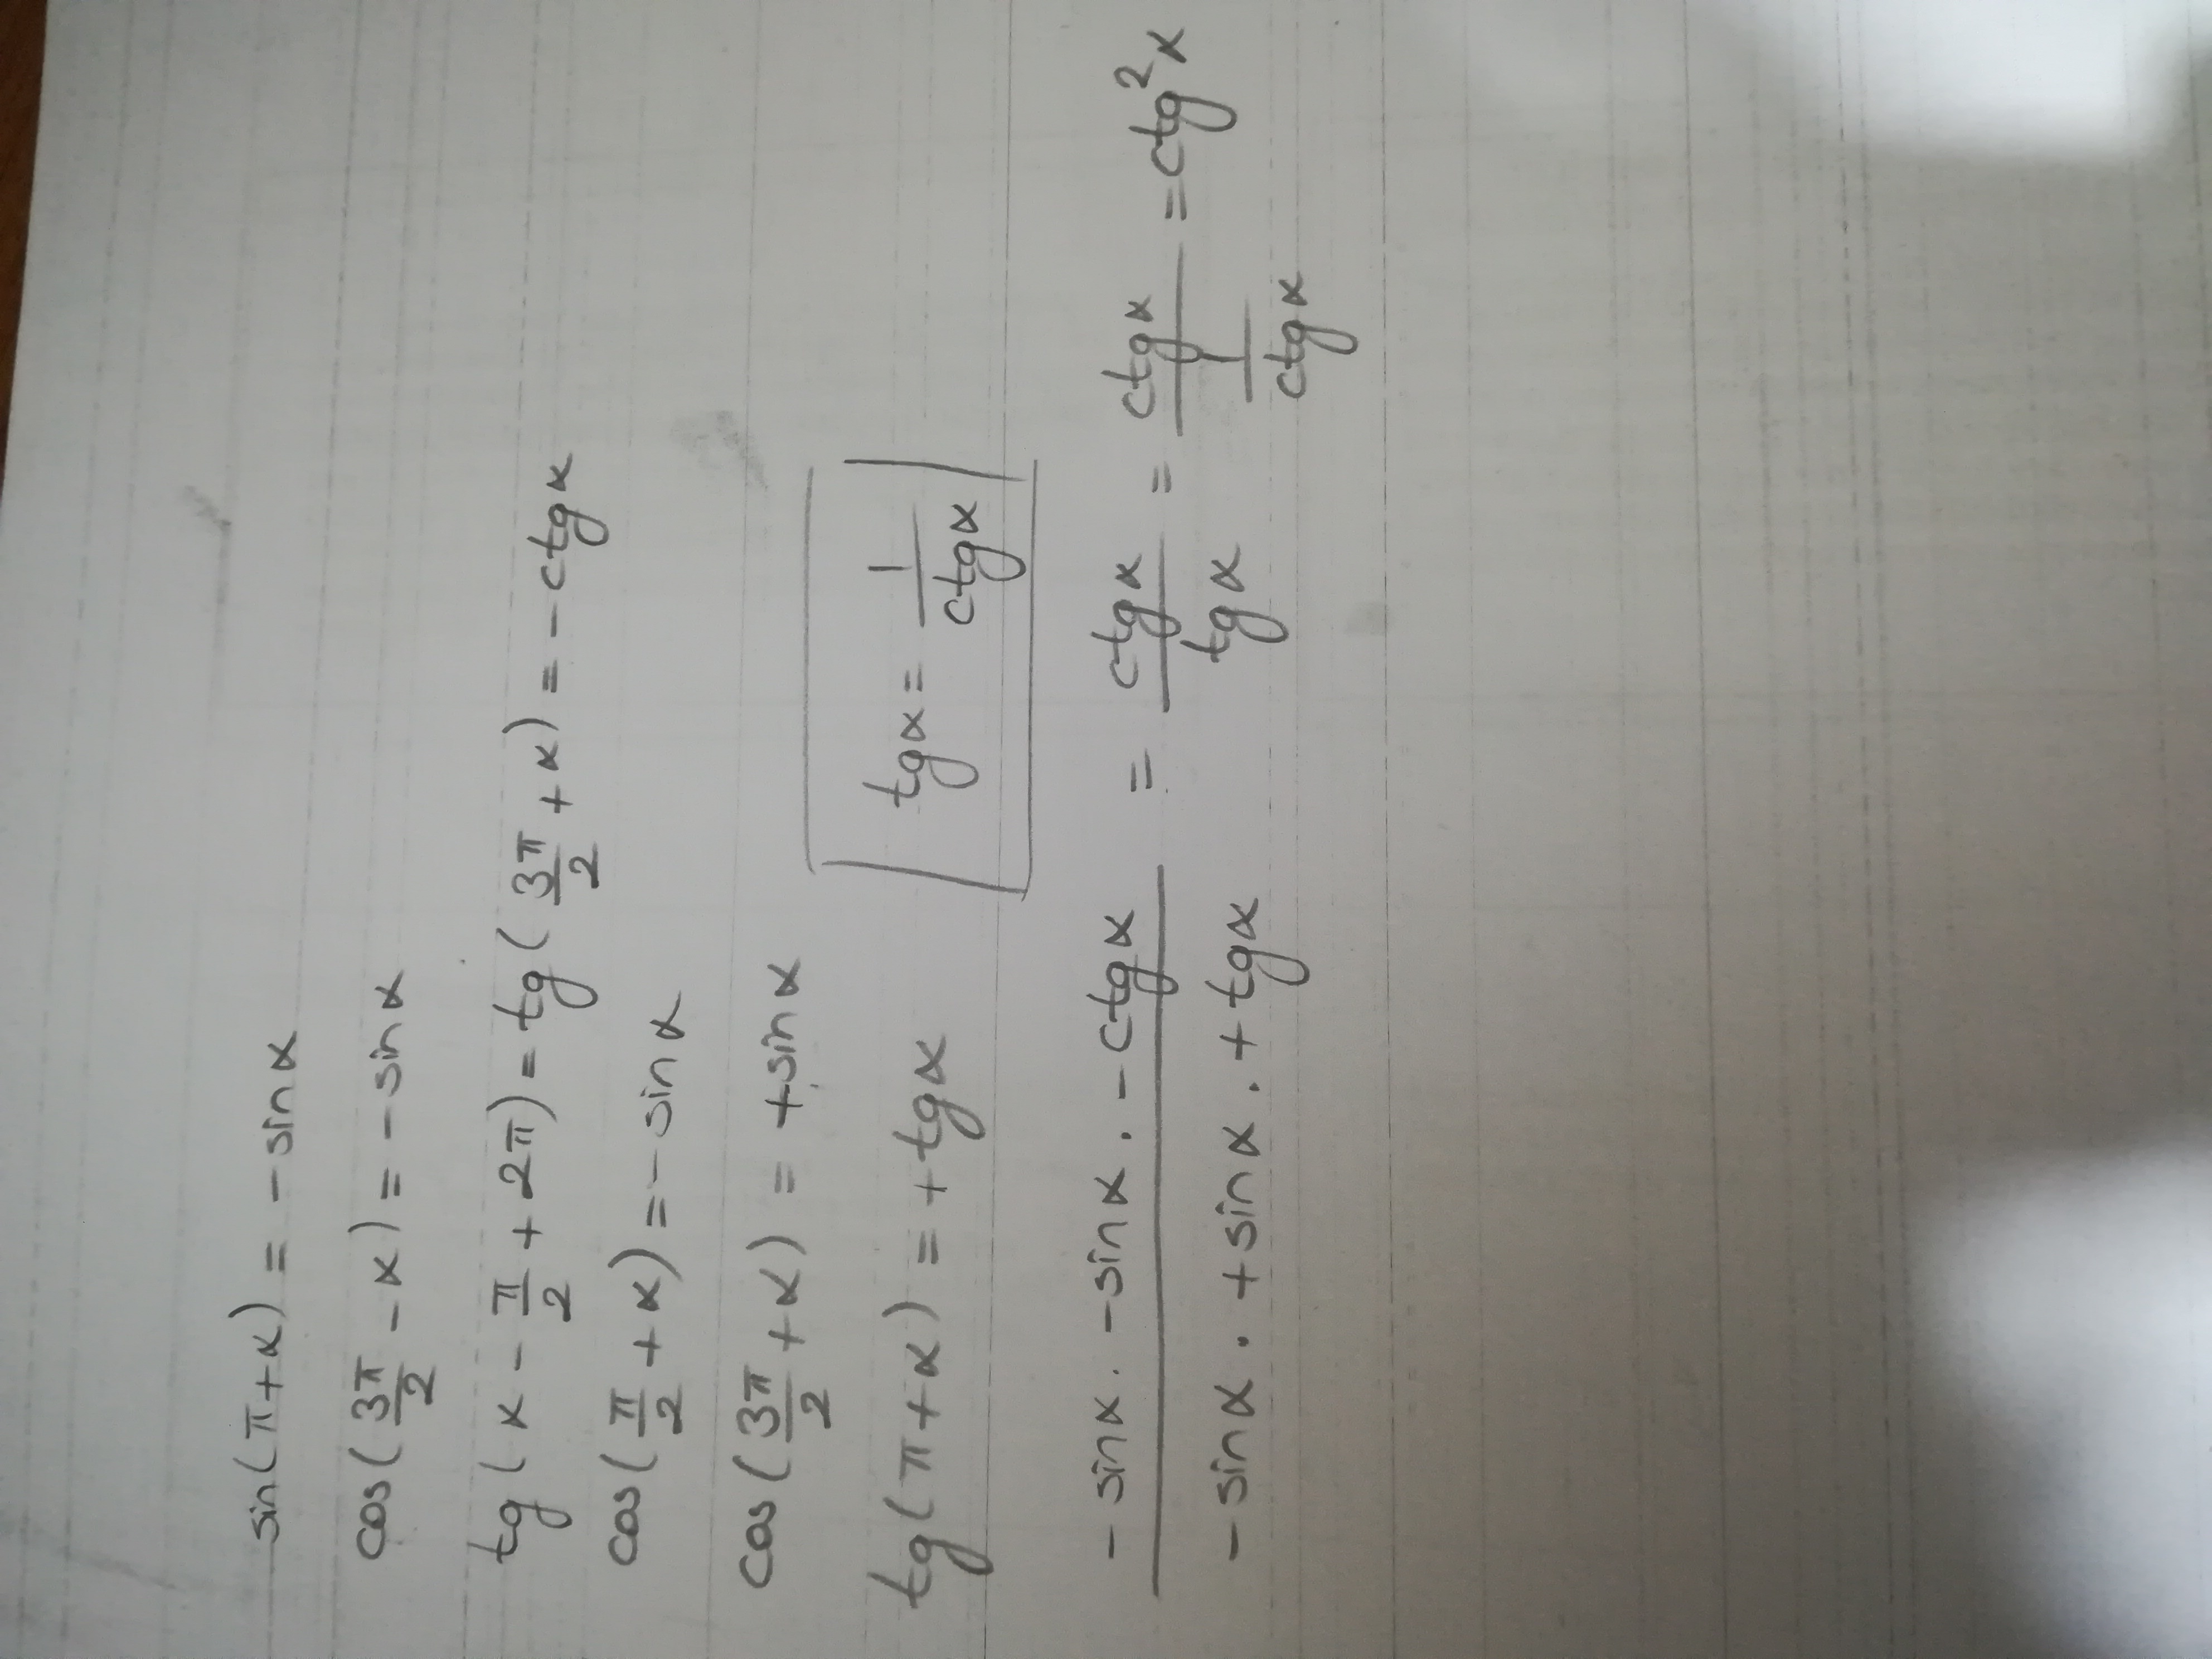 sin(π+α) = -sinα
cos(3π/2 - α) = -sinα
tg(α - π/2 + 2π) = tg(3π/2 + α) = -ctgα
cos(π/2 + α) = -sinα
cos(3π/2 + α) = +sinα
tg(π+α) = +tgα
tgα = 1/ctgα
(-sinα . -sinα . -ctgα)/(-sinα . +sinα . +tgα) = ctgα/tgα = ctgα/(1/ctgα) = ctg²α